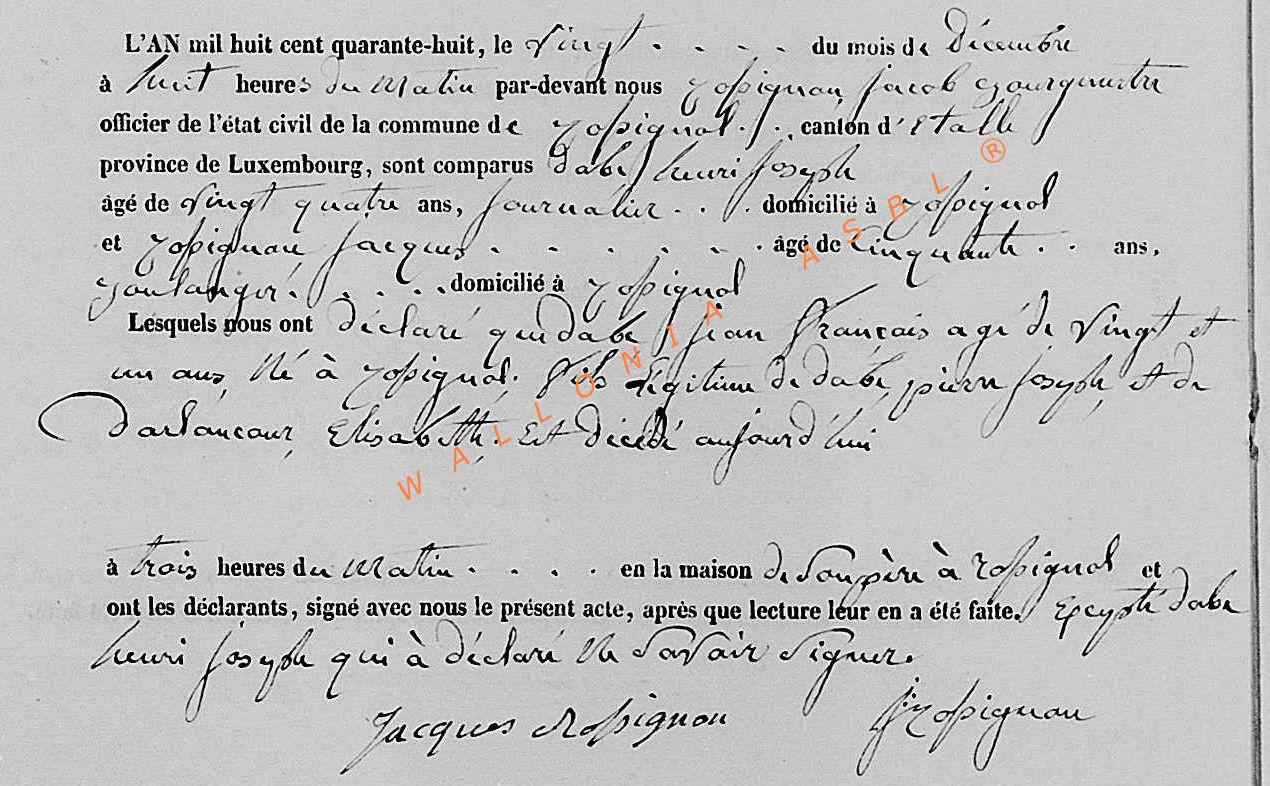 L'AN mil huit cent quarante-huit, le vingt . . . . du mois de Décembre
à huit heures du Matin par-devant nous Rossignon jacob Bourguemtre
officier de l'état civil de la commune de Rossignol . / . , canton d'Etalle
province de Luxembourg, sont comparus dabe, henri joseph
âgé de vingt quatre ans, journalier . . . domicilié à Rossignol
et Rossignon jacques . . . . . . . âgé de Cinquante . . ans,
Boulanger . . . . . domicilié à Rossignol
Lesquels nous ont déclaré que dabe, jean François agé de vingt et
un ans, Né à Rossignol. Fils Légitime de dabe, pierre joseph et de
Darlancour, Elisabeth. Est décédé aujourd'hui
à trois heures du Matin . . . . en la maison de Son père à Rossignol et
ont les déclarants, signé avec nous le présent acte, après que lecture leur en a été faite. Excepté dabe
henri joseph qui à déclaré Ne Savoir Signer.
Jacques Rossignon J. Rossignon
WALLONIA ASBL ®